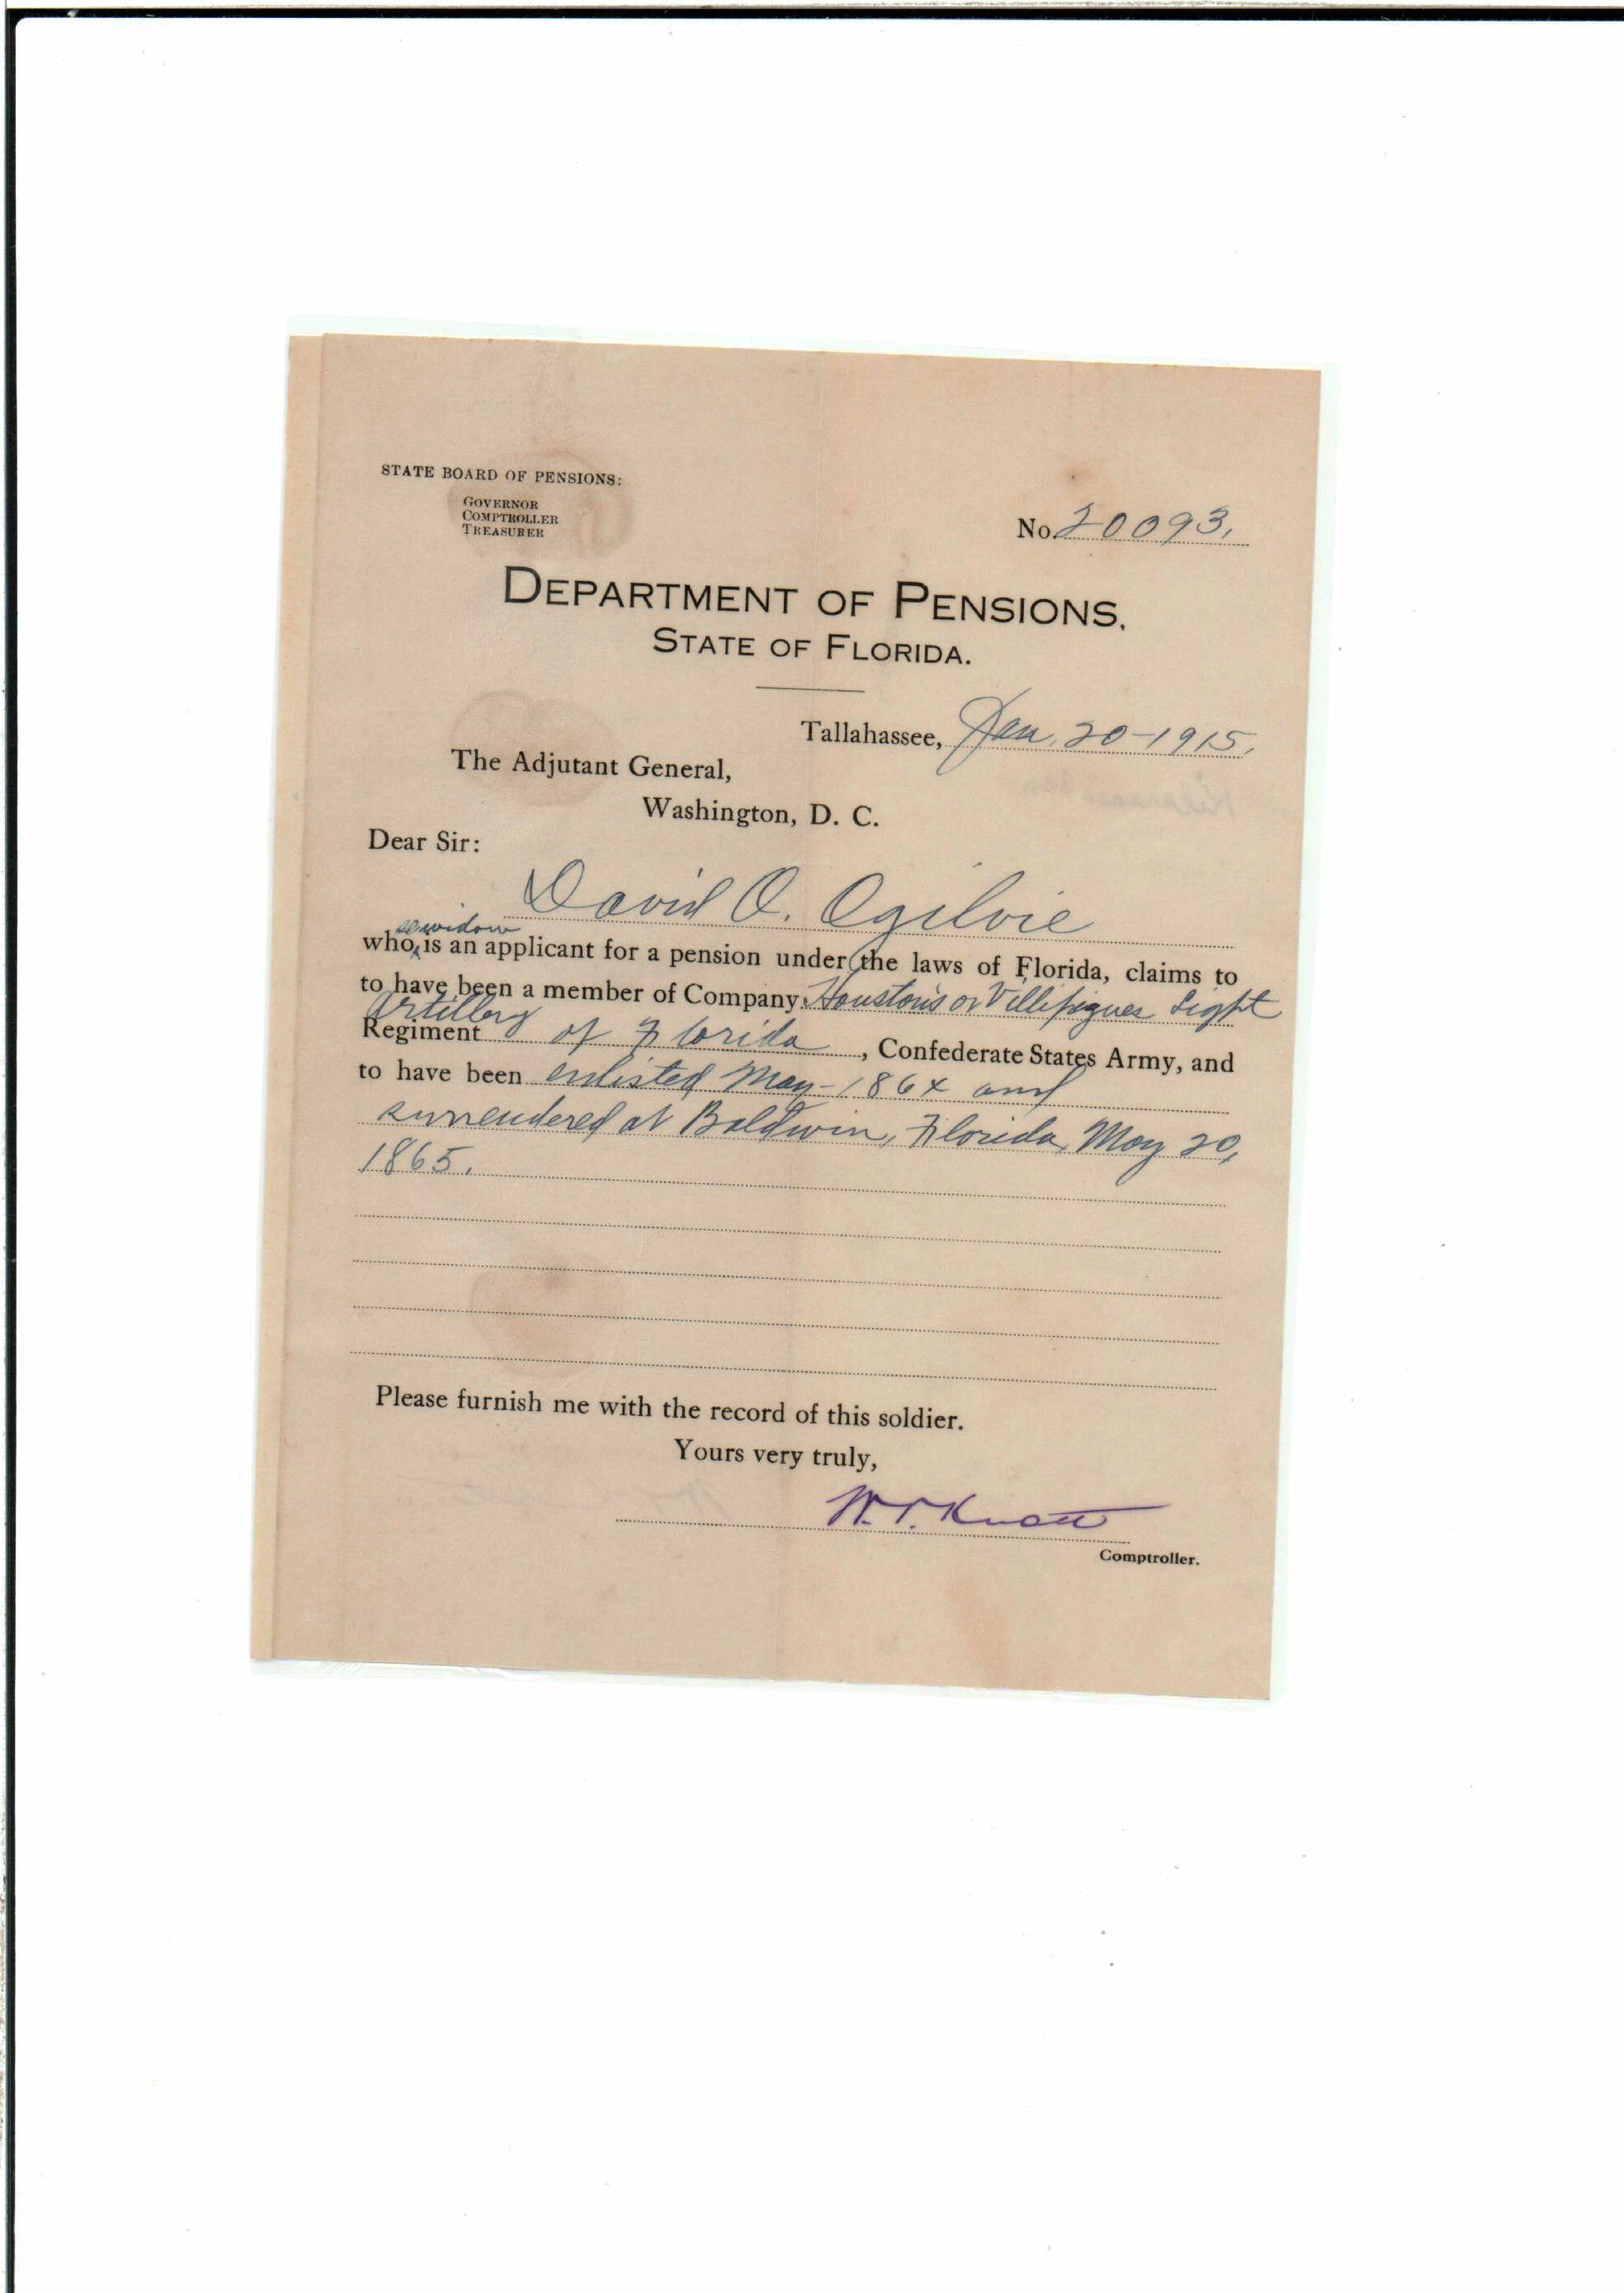 STATE BOARD OF PENSIONS:
GOVERNOR
COMPTROLLER
TREASURER
No. 20093.
DEPARTMENT OF PENSIONS,
STATE OF FLORIDA.
Tallahassee, Jan. 20-1915.
The Adjutant General,
Washington, D. C.
Dear Sir:
David O. Ogilvie
widow
who is an applicant for a pension under the laws of Florida, claims to
to have been a member of Company Houston's or Villepigues Light
Artillery
Regiment of Florida, Confederate States Army, and
to have been enlisted May-1864 and
surrendered at Baldwin, Florida, May 20,
1865.
Please furnish me with the record of this soldier.
Yours very truly,
W.V. Knott
Comptroller.